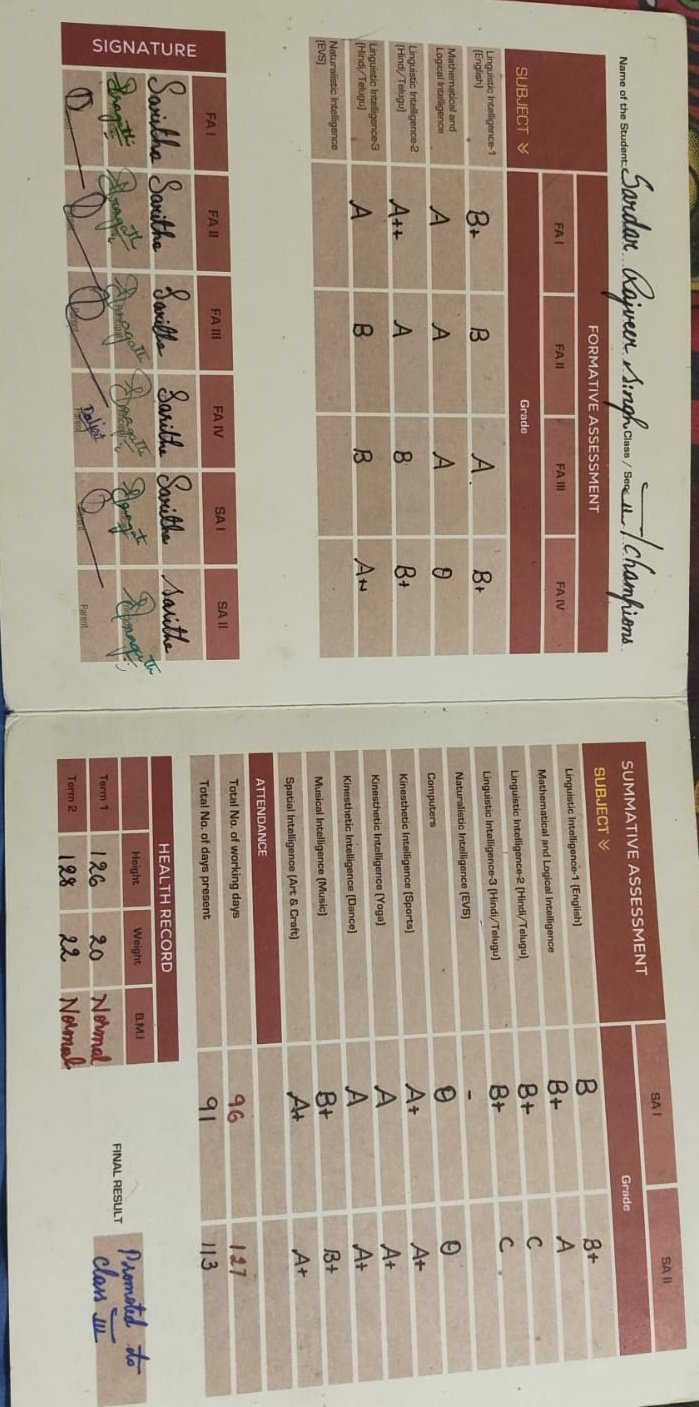 Name of the Student: Sardar Rajveer Singh Class / Sec: II / Champions
FORMATIVE ASSESSMENT
SUBJECT Grade
FA I FA II FA III FA IV
Linguistic Intelligence-1 (English) B+ B A B+
Mathematical and Logical Intelligence A A A O
Linguistic Intelligence-2 (Hindi/Telugu) A++ A B B+
Linguistic Intelligence-3 (Hindi/Telugu) A B B
Naturalistic Intelligence (EVS)
SIGNATURE FA I FA II FA III FA IV SA I SA II
Saritha Saritha Saritha Saritha Saritha Saritha
Parent Parent Parent Parent Parent Parent
SUMMATIVE ASSESSMENT SA I SA II
SUBJECT Grade
Linguistic Intelligence-1 (English) B B+
Mathematical and Logical Intelligence B+ A
Linguistic Intelligence-2 (Hindi/Telugu) B+ C
Linguistic Intelligence-3 (Hindi/Telugu) B+ C
Naturalistic Intelligence (EVS) -
Computers O O
Kinesthetic Intelligence (Sports) A+ A+
Kinesthetic Intelligence (Yoga) A A+
Kinesthetic Intelligence (Dance) A A+
Musical Intelligence (Music) B+ B+
Spatial Intelligence (Art & Craft) A+ A+
ATTENDANCE
Total No. of working days 96 127
Total No. of days present 91 113
HEALTH RECORD
Height Weight B.M.I
Term 1 126 20 Normal
Term 2 128 22 Normal
FINAL RESULT Promoted to
class III